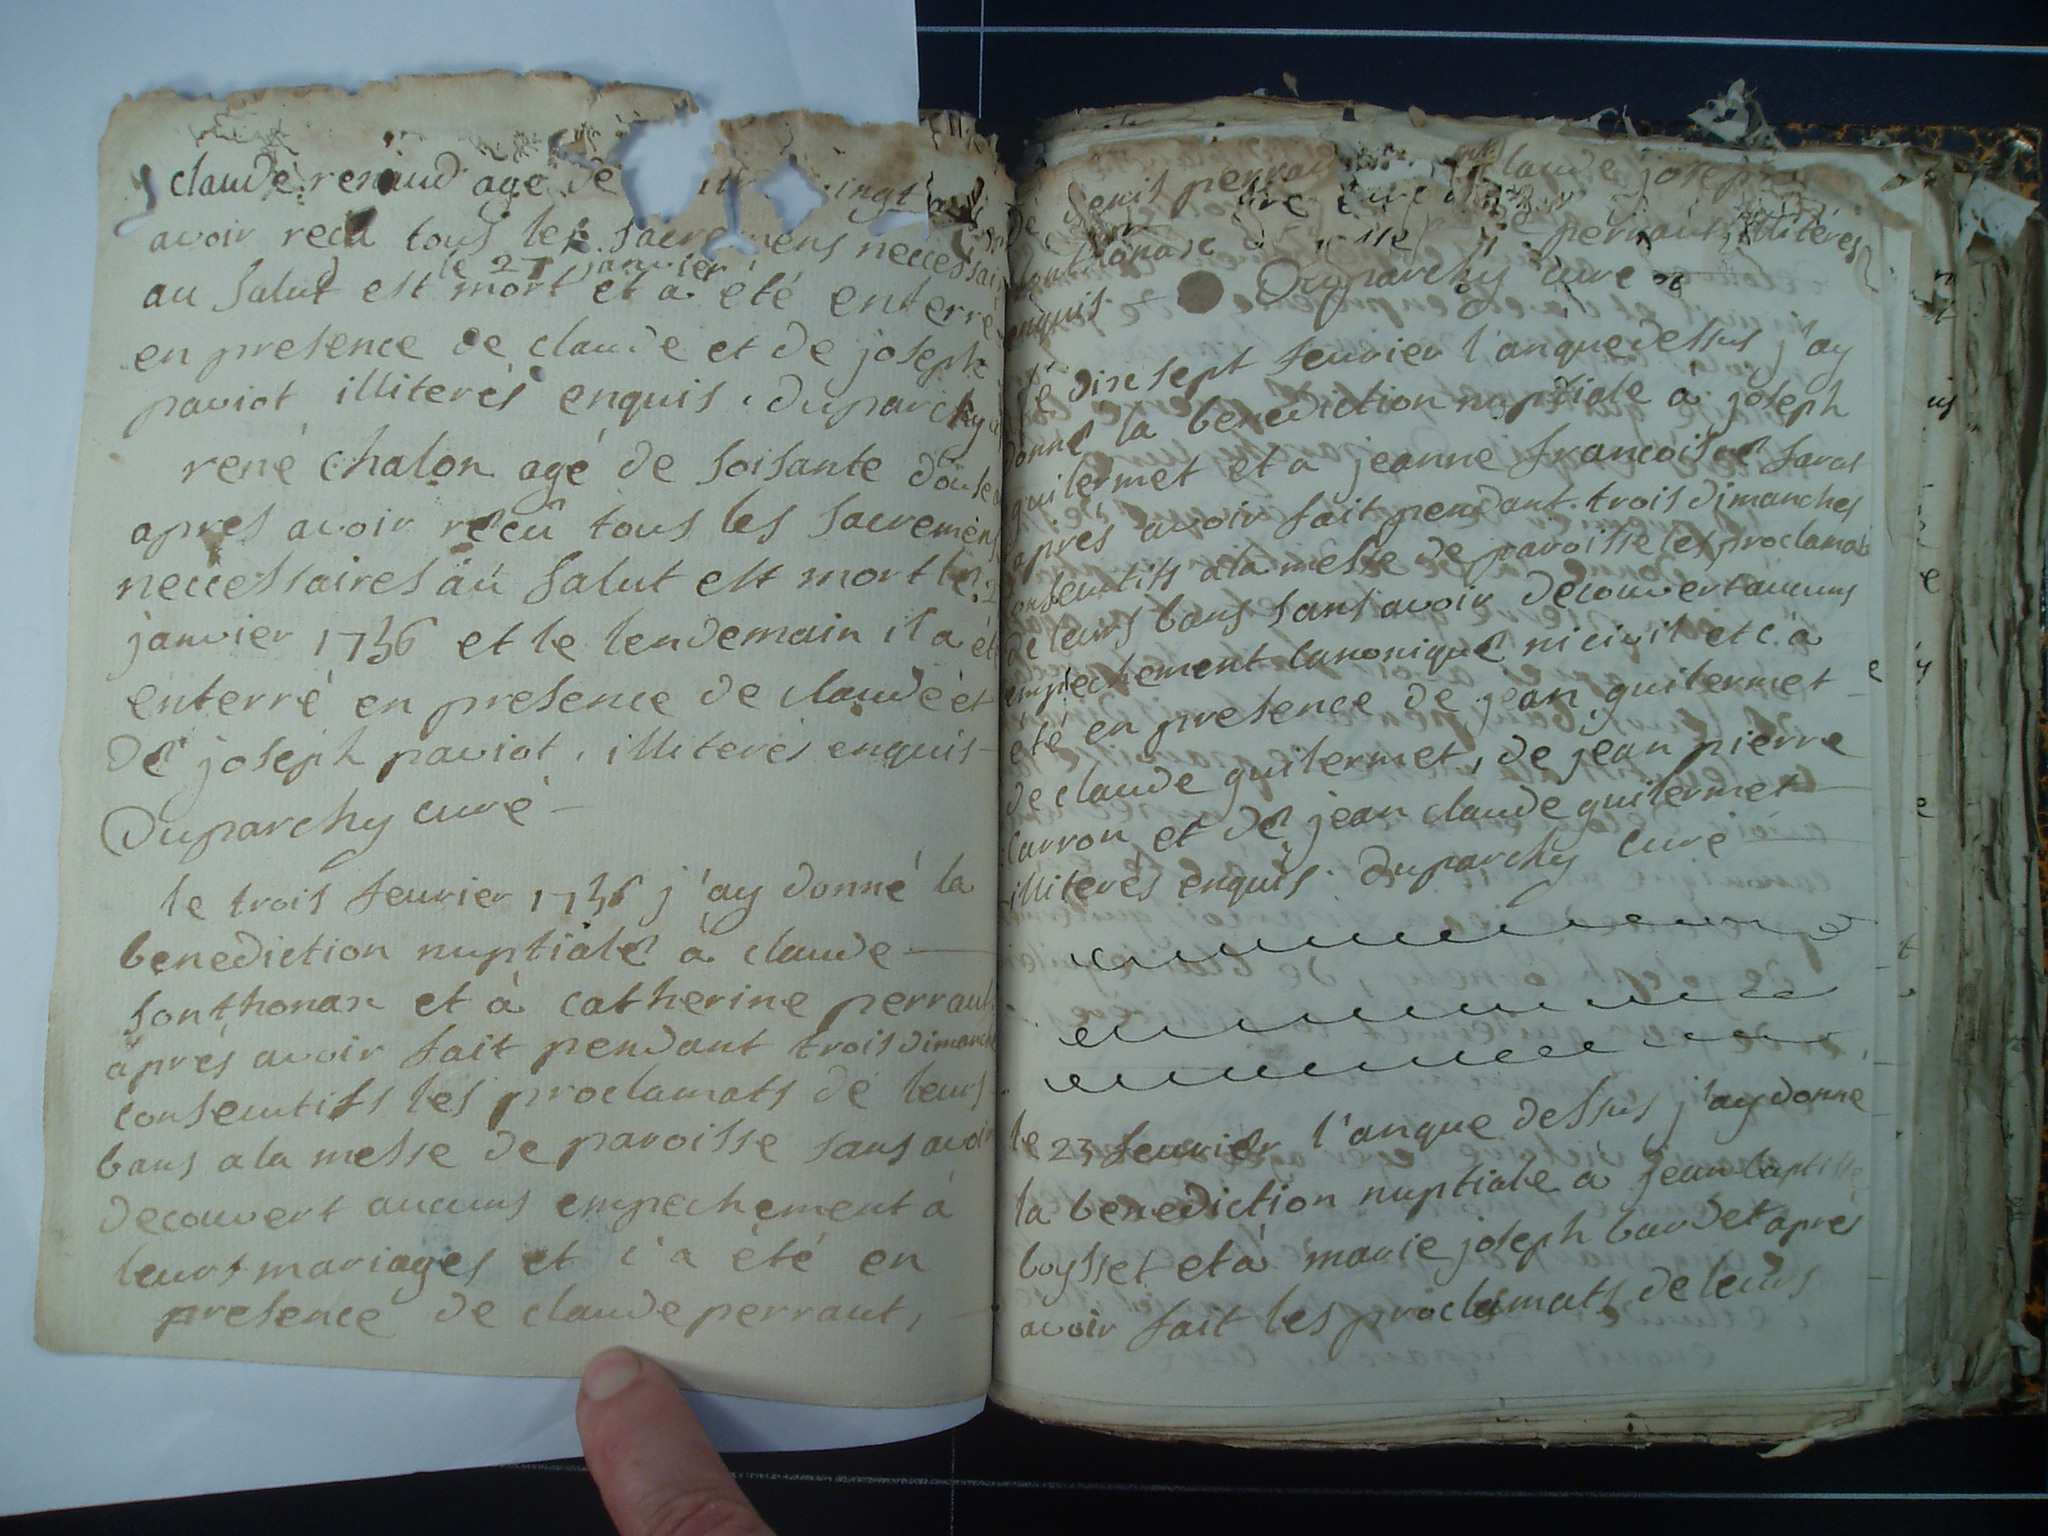 claude renaud agé de ingt
avoir recu tous les sacremens neccessai
le 27 janvier
au salut est mort et a été enterré
en presence de claude et de joseph
paviot illiterés enquis . Duparchy
rené chalon agé de soisante douse
apres avoir recû tous les sacremens
neccessaires au salut est mort le 2
janvier 1736 et le lendemain il a été
enterré en presence de claude et
de joseph paviot . illiterés enquis
Duparchy curé
le trois feurier 1736 j'ay donné la
benediction nuptiale à claude
sonthonax et à catherine perraut
aprés avoir fait pendant trois dimanche
consecutifs les proclamats de leurs
bans a la messe de paroisse sans avoir
decouvert aucuns empechement à
leurs mariages et c'a été en
presence de claude perraut,
de denis perrau claude joseph
sonthonax perraut illiterés
enquis Duparchy curé
le dixe sept feurier l'anque dessus j'ay
donné la benediction nuptiale a joseph
guilermet et a jeanne francoise
apres avoir fait pendant trois dimanches
consecutifs a la messe de paroisse les proclamats
de leurs bans sans avoir decouvert aucuns
empechement canonique ni civil et c'a
eté en presence de jean guilermet
de claude guilermet, de jean pierre
carron et de jean claude guilermet
illiterés enquis . Duparchy curé
le 23 feurier l'anque dessus j'ay donné
la benediction nuptiale a jean baptiste
boysset et à marie joseph bardet aprés
avoir fait les proclamats de leurs